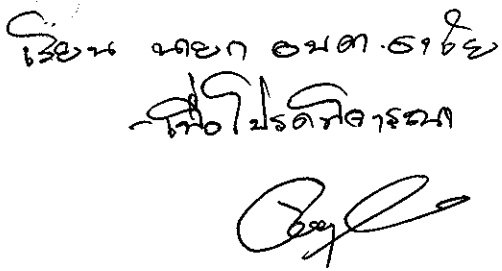 เรียน นายก อบต.ธาตุ
-เพื่อโปรดพิจารณา